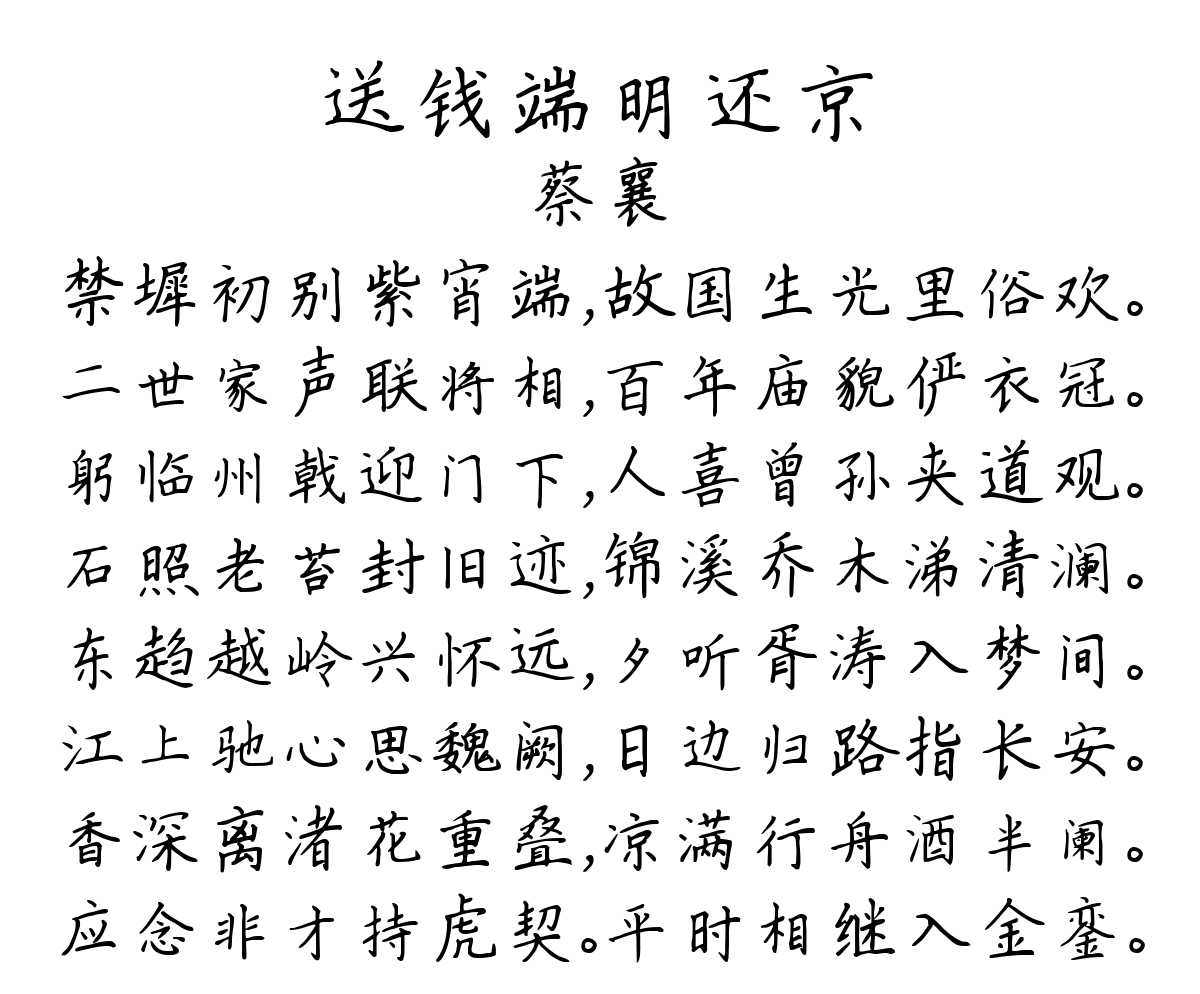 送钱端明还京
蔡襄
禁墀初别紫宵端,故国生光里俗欢。
二世家声联将相,百年庙貌俨衣冠。
躬临州戟迎门下,人喜曾孙夹道观。
石照老苔封旧迹,锦溪乔木涕清澜。
东趋越岭兴怀远,夕听胥涛入梦间。
江上驰心思魏阙,日边归路指长安。
香深离渚花重叠,凉满行舟酒半阑。
应念非才持虎契。平时相继入金銮。